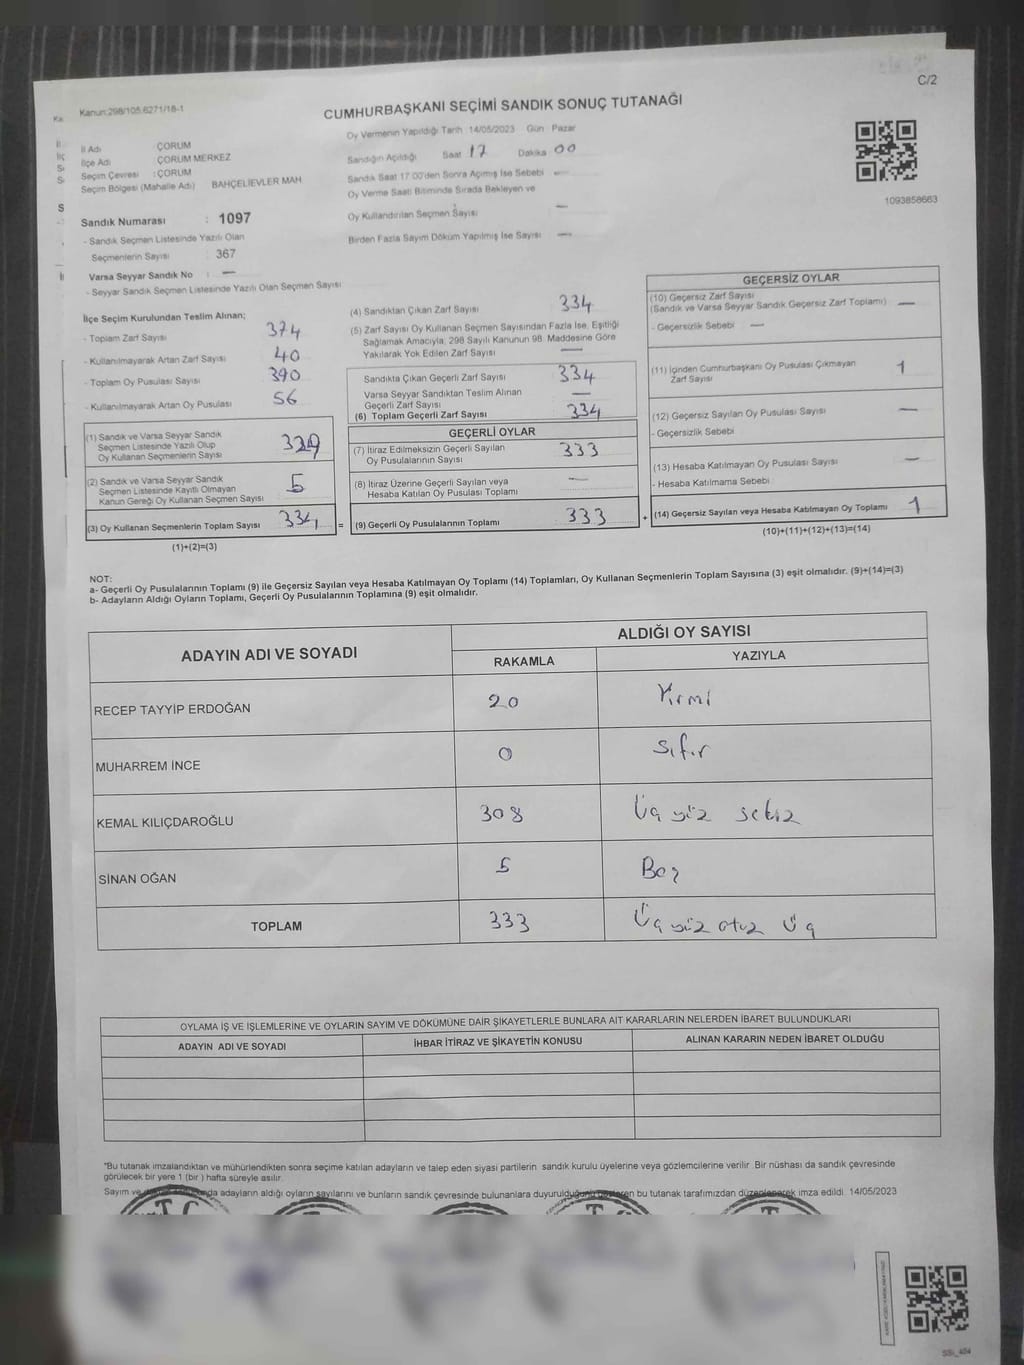 C/2
Kanun:298/105.6271/18-1
CUMHURBAŞKANI SEÇİMİ SANDIK SONUÇ TUTANAĞI
Oy Vermenin Yapıldığı Tarih 14/05/2023 Gün Pazar
İl Adı ÇORUM
İlçe Adı ÇORUM MERKEZ
Seçim Çevresi : ÇORUM
Seçim Bölgesi (Mahalle Adı) BAHÇELİEVLER MAH.
Sandığın Açıldığı Saat 17 Dakika 00
Sandık Saat 17.00'den Sonra Açılmış İse Sebebi —
Oy Verme Saati Bitiminde Sırada Bekleyen ve
Oy Kullandırılan Seçmen Sayısı —
Birden Fazla Sayım Döküm Yapılmış İse Sayısı —
1093858663
Sandık Numarası : 1097
- Sandık Seçmen Listesinde Yazılı Olan
Seçmenlerin Sayısı 367
Varsa Seyyar Sandık No : —
- Seyyar Sandık Seçmen Listesinde Yazılı Olan Seçmen Sayısı
İlçe Seçim Kurulundan Teslim Alınan;
- Toplam Zarf Sayısı 374
- Kullanılmayarak Artan Zarf Sayısı 40
- Toplam Oy Pusulası Sayısı 390
- Kullanılmayarak Artan Oy Pusulası 56
(1) Sandık ve Varsa Seyyar Sandık
Seçmen Listesinde Yazılı Olup
Oy Kullanan Seçmenlerin Sayısı 329
(2) Sandık ve Varsa Seyyar Sandık
Seçmen Listesinde Kayıtlı Olmayan
Kanun Gereği Oy Kullanan Seçmen Sayısı 5
(3) Oy Kullanan Seçmenlerin Toplam Sayısı 334
(1)+(2)=(3)
(4) Sandıktan Çıkan Zarf Sayısı 334
(5) Zarf Sayısı Oy Kullanan Seçmen Sayısından Fazla İse, Eşitliği
Sağlamak Amacıyla, 298 Sayılı Kanunun 98. Maddesine Göre
Yakılarak Yok Edilen Zarf Sayısı —
Sandıkta Çıkan Geçerli Zarf Sayısı 334
Varsa Seyyar Sandıktan Teslim Alınan
Geçerli Zarf Sayısı —
(6) Toplam Geçerli Zarf Sayısı 334
GEÇERLİ OYLAR
(7) İtiraz Edilmeksizin Geçerli Sayılan
Oy Pusulalarının Sayısı 333
(8) İtiraz Üzerine Geçerli Sayılan veya
Hesaba Katılan Oy Pusulası Toplamı —
= (9) Geçerli Oy Pusulalarının Toplamı 333
GEÇERSİZ OYLAR
(10) Geçersiz Zarf Sayısı
(Sandık ve Varsa Seyyar Sandık Geçersiz Zarf Toplamı) —
- Geçersizlik Sebebi —
(11) İçinden Cumhurbaşkanı Oy Pusulası Çıkmayan
Zarf Sayısı 1
(12) Geçersiz Sayılan Oy Pusulası Sayısı —
- Geçersizlik Sebebi
(13) Hesaba Katılmayan Oy Pusulası Sayısı —
- Hesaba Katılmama Sebebi
+ (14) Geçersiz Sayılan veya Hesaba Katılmayan Oy Toplamı 1
(10)+(11)+(12)+(13)=(14)
NOT:
a- Geçerli Oy Pusulalarının Toplamı (9) ile Geçersiz Sayılan veya Hesaba Katılmayan Oy Toplamı (14) Toplamları, Oy Kullanan Seçmenlerin Toplam Sayısına (3) eşit olmalıdır. (9)+(14)=(3)
b- Adayların Aldığı Oyların Toplamı, Geçerli Oy Pusulalarının Toplamına (9) eşit olmalıdır.
ADAYIN ADI VE SOYADI
ALDIĞI OY SAYISI
RAKAMLA YAZIYLA
RECEP TAYYİP ERDOĞAN 20 Yirmi
MUHARREM İNCE 0 Sıfır
KEMAL KILIÇDAROĞLU 308 Üç yüz sekiz
SİNAN OĞAN 5 Beş
TOPLAM 333 Üç yüz otuz üç
OYLAMA İŞ VE İŞLEMLERİNE VE OYLARIN SAYIM VE DÖKÜMÜNE DAİR ŞİKAYETLERLE BUNLARA AİT KARARLARIN NELERDEN İBARET BULUNDUKLARI
ADAYIN ADI VE SOYADI İHBAR İTİRAZ VE ŞİKAYETİN KONUSU ALINAN KARARIN NEDEN İBARET OLDUĞU
*Bu tutanak imzalandıktan ve mühürlendikten sonra seçime katılan adayların ve talep eden siyasi partilerin sandık kurulu üyelerine veya gözlemcilerine verilir. Bir nüshası da sandık çevresinde
görülecek bir yere 1 (bir) hafta süreyle asılır.
Sayım ve adayların aldığı oyların sayılarını ve bunların sandık çevresinde bulunanlara duyurulduğunu gösteren bu tutanak tarafımızdan düzenlenerek imza edildi. 14/05/2023
T.C.
T
T
T
SSi_404